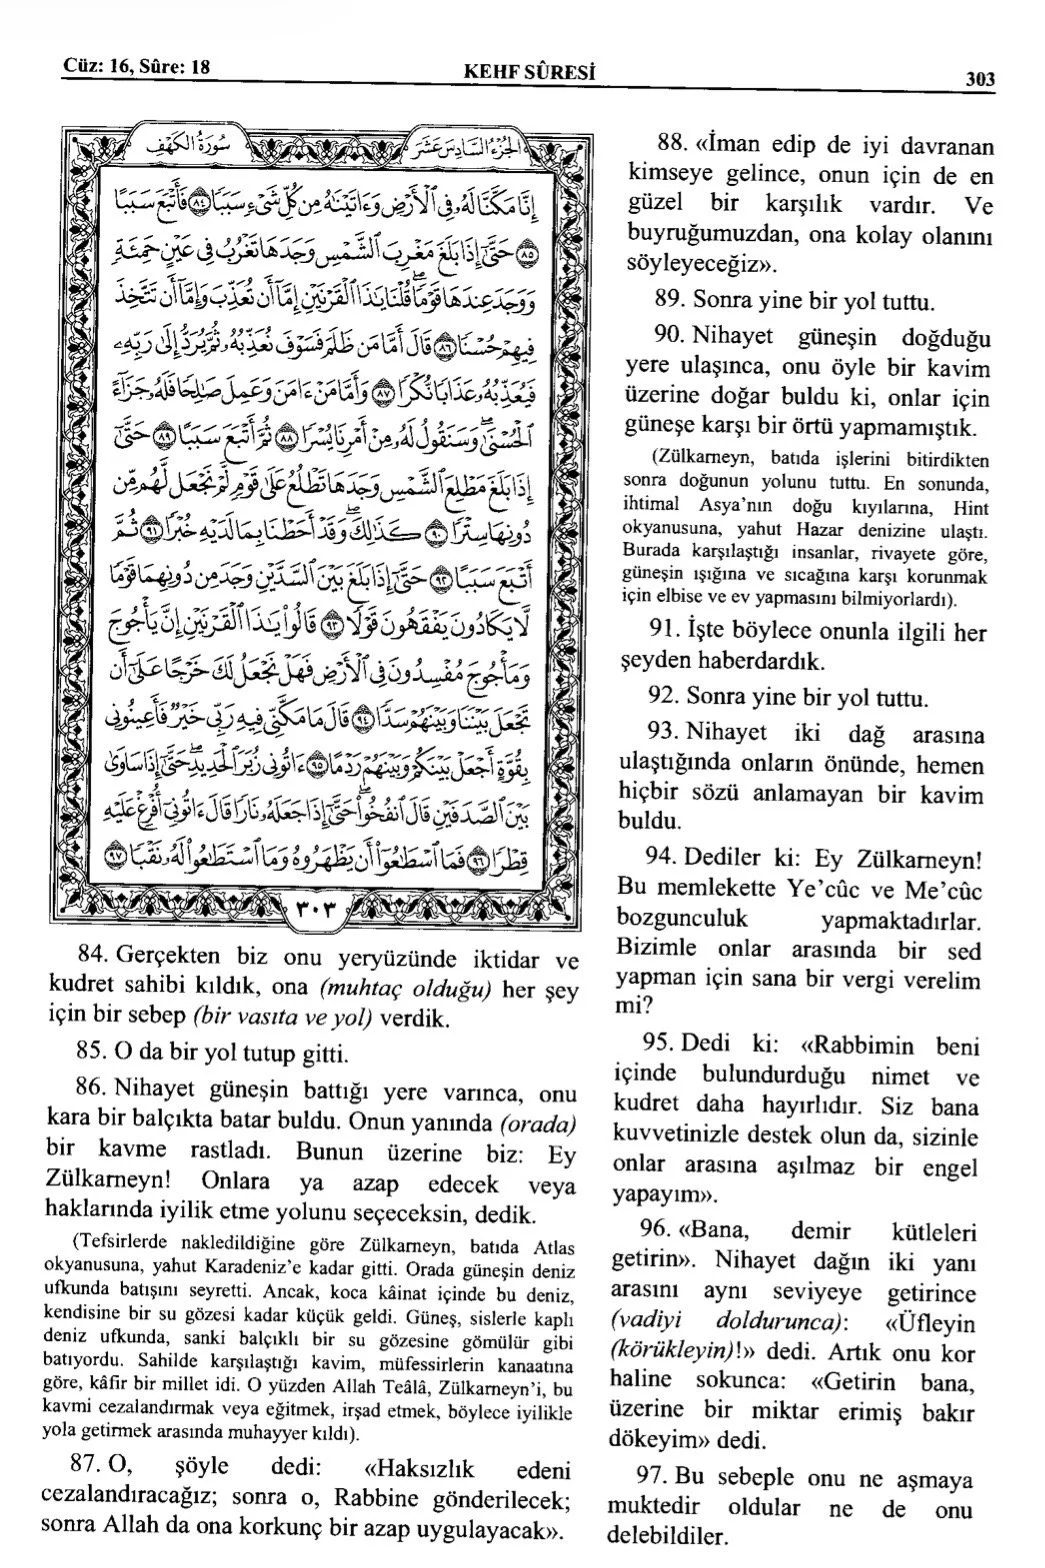 Cüz: 16, Sûre: 18
KEHF SÛRESİ
303
سُورَةُ الكَهْفِ
الجُزْءُ السَّادِسَ عَشَرَ
إِنَّا مَكَّنَّا لَهُۥ فِى ٱلْأَرْضِ وَءَاتَيْنَٰهُ مِن كُلِّ شَىْءٍ سَبَبًا ٨٤ فَأَتْبَعَ سَبَبًا
٨٥ حَتَّىٰٓ إِذَا بَلَغَ مَغْرِبَ ٱلشَّمْسِ وَجَدَهَا تَغْرُبُ فِى عَيْنٍ حَمِئَةٍ
وَوَجَدَ عِندَهَا قَوْمًا ۗ قُلْنَا يَٰذَا ٱلْقَرْنَيْنِ إِمَّآ أَن تُعَذِّبَ وَإِمَّآ أَن تَتَّخِذَ
فِيهِمْ حُسْنًا ٨٦ قَالَ أَمَّا مَن ظَلَمَ فَسَوْفَ نُعَذِّبُهُۥ ثُمَّ يُرَدُّ إِلَىٰ رَبِّهِۦ
فَيُعَذِّبُهُۥ عَذَابًا نُّكْرًا ٨٧ وَأَمَّا مَنْ ءَامَنَ وَعَمِلَ صَٰلِحًا فَلَهُۥ جَزَآءً
ٱلْحُسْنَىٰ ۖ وَسَنَقُولُ لَهُۥ مِنْ أَمْرِنَا يُسْرًا ٨٨ ثُمَّ أَتْبَعَ سَبَبًا ٨٩ حَتَّىٰٓ
إِذَا بَلَغَ مَطْلِعَ ٱلشَّمْسِ وَجَدَهَا تَطْلُعُ عَلَىٰ قَوْمٍ لَّمْ نَجْعَل لَّهُم مِّن
دُونِهَا سِتْرًا ٩٠ كَذَٰلِكَ وَقَدْ أَحَطْنَا بِمَا لَدَيْهِ خُبْرًا ٩١ ثُمَّ
أَتْبَعَ سَبَبًا ٩٢ حَتَّىٰٓ إِذَا بَلَغَ بَيْنَ ٱلسَّدَّيْنِ وَجَدَ مِن دُونِهِمَا قَوْمًا
لَّا يَكَادُونَ يَفْقَهُونَ قَوْلًا ٩٣ قَالُوا۟ يَٰذَا ٱلْقَرْنَيْنِ إِنَّ يَأْجُوجَ
وَمَأْجُوجَ مُفْسِدُونَ فِى ٱلْأَرْضِ فَهَلْ نَجْعَلُ لَكَ خَرْجًا عَلَىٰٓ أَن
تَجْعَلَ بَيْنَنَا وَبَيْنَهُمْ سَدًّا ٩٤ قَالَ مَا مَكَّنِّى فِيهِ رَبِّى خَيْرٌ فَأَعِينُونِى
بِقُوَّةٍ أَجْعَلْ بَيْنَكُمْ وَبَيْنَهُمْ رَدْمًا ٩٥ ءَاتُونِى زُبَرَ ٱلْحَدِيدِ ۖ حَتَّىٰٓ إِذَا سَاوَىٰ
بَيْنَ ٱلصَّدَفَيْنِ قَالَ ٱنفُخُوا۟ ۖ حَتَّىٰٓ إِذَا جَعَلَهُۥ نَارًا قَالَ ءَاتُونِىٓ أُفْرِغْ عَلَيْهِ
قِطْرًا ٩٦ فَمَا ٱسْطَٰعُوٓا۟ أَن يَظْهَرُوهُ وَمَا ٱسْتَطَٰعُوا۟ لَهُۥ نَقْبًا ٩٧
٣٠٣
84. Gerçekten biz onu yeryüzünde iktidar ve
kudret sahibi kıldık, ona (muhtaç olduğu) her şey
için bir sebep (bir vasıta ve yol) verdik.
85. O da bir yol tutup gitti.
86. Nihayet güneşin battığı yere varınca, onu
kara bir balçıkta batar buldu. Onun yanında (orada)
bir kavme rastladı. Bunun üzerine biz: Ey
Zülkarneyn! Onlara ya azap edecek veya
haklarında iyilik etme yolunu seçeceksin, dedik.
(Tefsirlerde nakledildiğine göre Zülkarneyn, batıda Atlas
okyanusuna, yahut Karadeniz'e kadar gitti. Orada güneşin deniz
ufkunda batışını seyretti. Ancak, koca kâinat içinde bu deniz,
kendisine bir su gözesi kadar küçük geldi. Güneş, sislerle kaplı
deniz ufkunda, sanki balçıklı bir su gözesine gömülür gibi
batıyordu. Sahilde karşılaştığı kavim, müfessirlerin kanaatına
göre, kâfir bir millet idi. O yüzden Allah Teâlâ, Zülkarneyn'i, bu
kavmi cezalandırmak veya eğitmek, irşad etmek, böylece iyilikle
yola getirmek arasında muhayyer kıldı).
87. O, şöyle dedi: «Haksızlık edeni
cezalandıracağız; sonra o, Rabbine gönderilecek;
sonra Allah da ona korkunç bir azap uygulayacak».
88. «İman edip de iyi davranan
kimseye gelince, onun için de en
güzel bir karşılık vardır. Ve
buyruğumuzdan, ona kolay olanını
söyleyeceğiz».
89. Sonra yine bir yol tuttu.
90. Nihayet güneşin doğduğu
yere ulaşınca, onu öyle bir kavim
üzerine doğar buldu ki, onlar için
güneşe karşı bir örtü yapmamıştık.
(Zülkarneyn, batıda işlerini bitirdikten
sonra doğunun yolunu tuttu. En sonunda,
ihtimal Asya'nın doğu kıyılarına, Hint
okyanusuna, yahut Hazar denizine ulaştı.
Burada karşılaştığı insanlar, rivayete göre,
güneşin ışığına ve sıcağına karşı korunmak
için elbise ve ev yapmasını bilmiyorlardı).
91. İşte böylece onunla ilgili her
şeyden haberdardık.
92. Sonra yine bir yol tuttu.
93. Nihayet iki dağ arasına
ulaştığında onların önünde, hemen
hiçbir sözü anlamayan bir kavim
buldu.
94. Dediler ki: Ey Zülkarneyn!
Bu memlekette Ye'cûc ve Me'cûc
bozgunculuk yapmaktadırlar.
Bizimle onlar arasında bir sed
yapman için sana bir vergi verelim
mi?
95. Dedi ki: «Rabbimin beni
içinde bulundurduğu nimet ve
kudret daha hayırlıdır. Siz bana
kuvvetinizle destek olun da, sizinle
onlar arasına aşılmaz bir engel
yapayım».
96. «Bana, demir kütleleri
getirin». Nihayet dağın iki yanı
arasını aynı seviyeye getirince
(vadiyi doldurunca): «Üfleyin
(körükleyin)!» dedi. Artık onu kor
haline sokunca: «Getirin bana,
üzerine bir miktar erimiş bakır
dökeyim» dedi.
97. Bu sebeple onu ne aşmaya
muktedir oldular ne de onu
delebildiler.